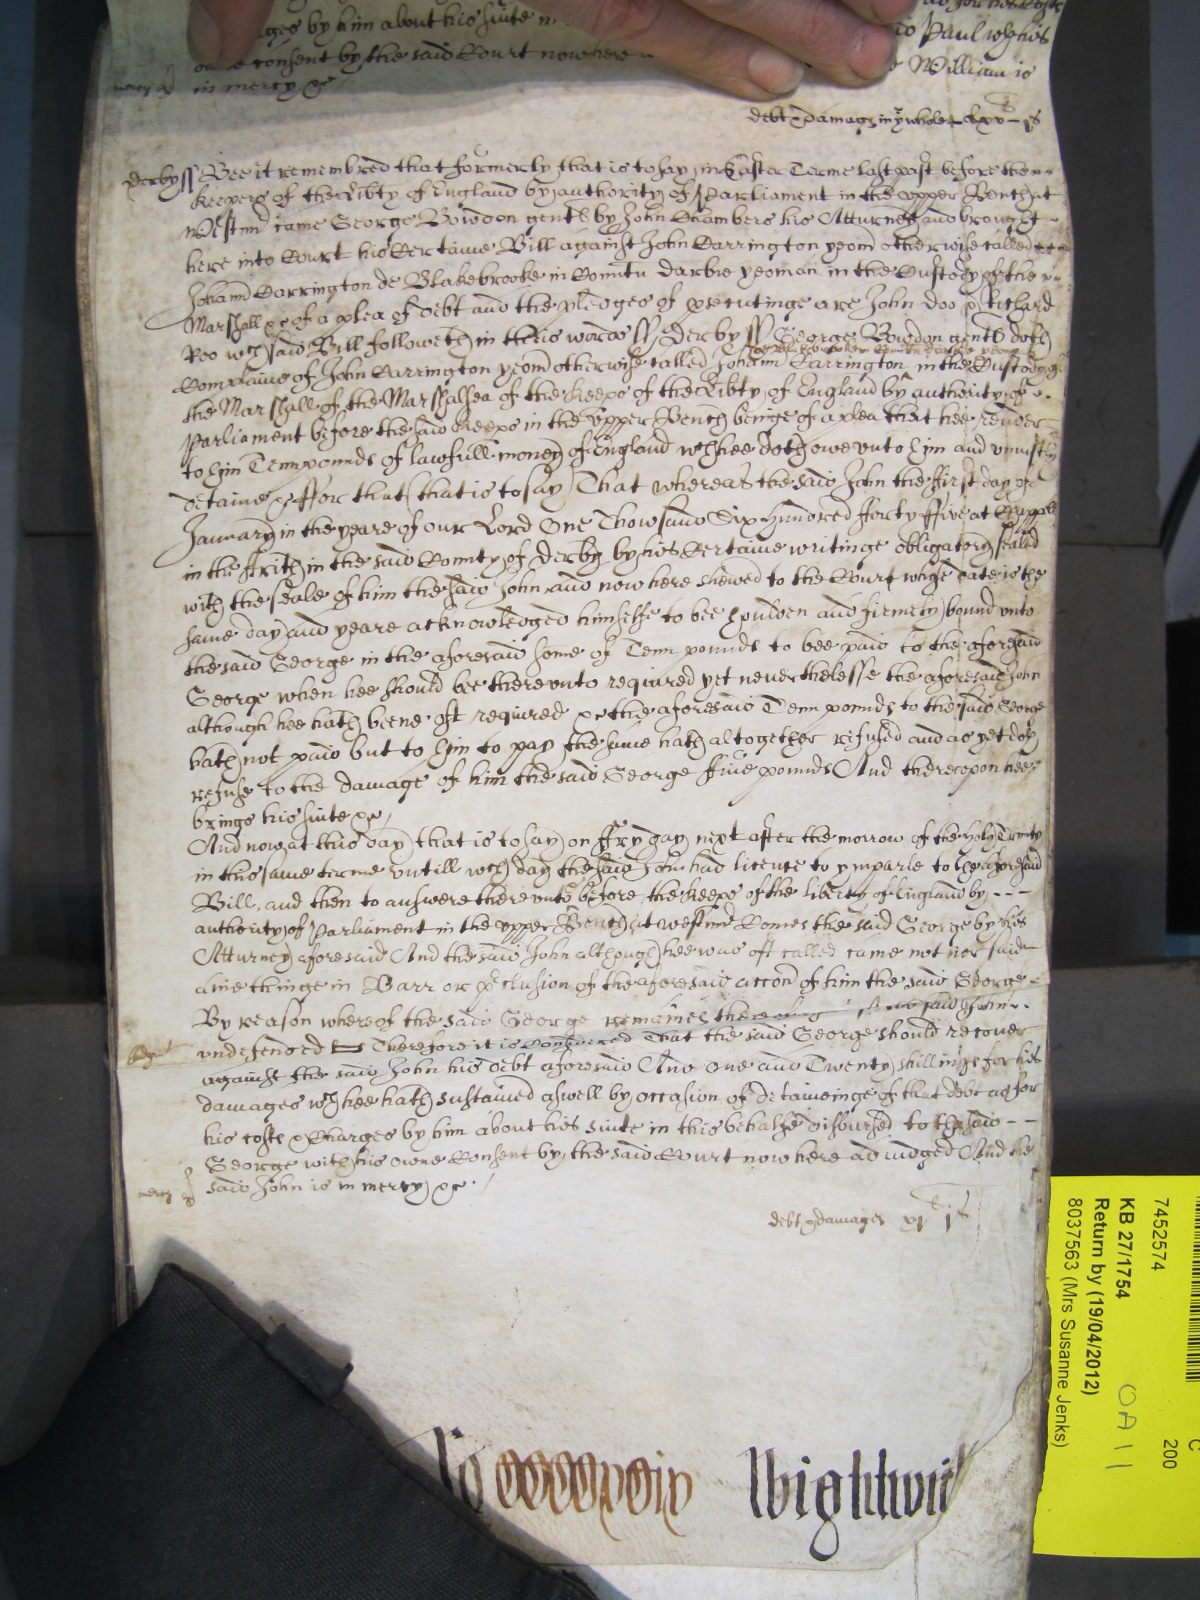 ges by him about his suite in
Paul whose is
owne consent by the said Court nowhere
William is
mercy
in mercy &c
debt & damages in ye whole lxv - js
Derby ss Bee it remembred that formerly that is to say in Easter Terme last past before the
keepers of the Libty of England by authority of Parliament in the Upper Bench at
Westmr came George Bowdon gentl by John Chambers his Atturney and brought
here into Court his Certaine Bill against John Carrington yeom otherwise called
Joham Carrington de Blakebrooke in Comitu Darbie yeoman in the Custody of the
Marshall &c of a plea of debt and the pledges of prsecutinge are John Doo & Richard
Roo wch said Bill followeth in theis words ss Derby ss George Bowdon gentl doth
de Blakebrooke in Comitu Darbie yeoman
Complaine of John Carrington yeom otherwise called Joham Carrington in the Custody of
the Marshall of the Marshalsea of the keeps of the Libty of England by authority of
Parliament before the said keeps in the Upper Bench beinge of a plea that hee render
to him Tenn pounds of lawfull money of England wch hee doth owe unto him and uniustly
detaine &c ffor that that is to say That whereas the said John the first day of
January in the yeare of our Lord One Thowsand Six hundred fforty ffive at Chappell
in the ffrith in the said County of Derby by his Certaine writinge obligatory sealed
with the seale of him the said John and now here shewed to the Court whose date is the
same day and yeare acknowledged himselfe to bee houlden and firmely bound unto
the said George in the aforesaid some of Tenn pounds to bee paid to the aforesaid
George when hee should bee thereunto required yet neverthelesse the aforesaid John
although hee hath beene oft required &c the aforesaid Tenn pounds to the said George
hath not paid but to him to pay the same hath altogether refused and as yet doth
refuse to the damage of him the said George ffive pounds And thereupon hee
brings his suite &c
And now at this day that is to say on ffryday next after the morrow of the holy Trinity
in this same terme untill wch day the said John had licence to ymparle to the aforesaid
Bill, and then to answere thereunto before the keeps of the liberty of England by - - -
authority of Parliament in the upper Bench at westmr Comes the said George by his
Atturney aforesaid And the said John although hee was oft called came not nor said
anie thinge in Barr or prclusion of the aforesaid accon of him the said George -
By reason whereof the said George remaines the said John
undefended Therefore it is Considered That the said George should recover
against the said John his debt aforesaid And one and Twenty shillings for his
damages wch hee hath sustained aswell by occasion of detaineinge of that debt as for
his costs & Charges by him about his suite in this behalfe disbursed to the said - -
George with his owne Consent by the said Court now here adiudged And the
mercy
said John is in mercy &c.
debt & damages xjl js
Wightwick
7452574
KB 27/1754
Return by (19/04/2012)
8037563 (Mrs Susanne Jenks)
C
200
OA 11